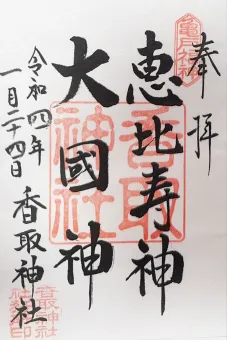 奉拝
恵比寿神
大國神
令和四年
一月二十四日
香取神社
香取
神社
亀戸福神